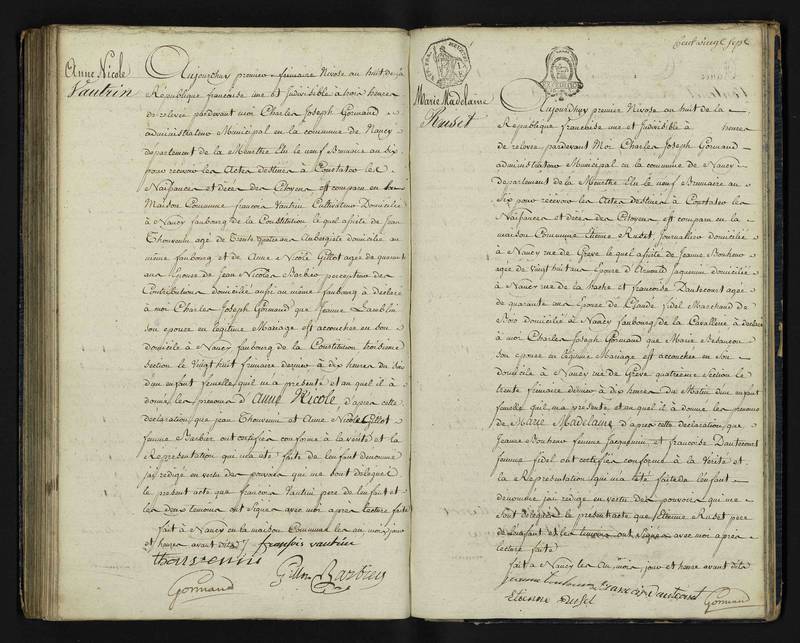 Anne Nicole
Vautrin
Aujourdhuy premier Nivose an huit de la
République francoise une et Indivisible à trois heures
de relevée pardevant moi Charles Joseph Gormand
administrateur Municipal en la commune de Nancy
département de la Meurthe Elu le neuf Brumaire an six
pour recevoir les Actes destinés à Constater les
Naissances et décès des Citoyens est comparu en la
Maison Commune francois Vautrin Cultivateur Domicilié
à Nancy faubourg de la Constitution lequel assisté de Jean
Thouvenin agé de Trente quatre ans Aubergiste domicilié au
même faubourg et de Anne Nicole Gillot agée de quarante
ans Epouse de Jean Nicolas Barbier percepteur des
Contributions domicilié aussi au même faubourg à déclaré
à moi Charles Joseph Gormand que Jeanne Lamblin
son epouse en légitime Mariage est accouchée en son
domicile à Nancy faubourg de la Constitution troisieme
Section le Vingt huit frimaire dernier à dix heures du soir
dun enfant femelle quil ma présenté et auquel il à
donné les prenoms d'Anne Nicole d'apres cette
déclaration que jean Thouvenin et Anne Nicole Gillot
femme Barbier ont certifiée conforme à la vérité et la
Représentation qui ma été faite de lenfant denommé
jai rédigé en vertu des pouvoirs qui me sont délégués
le présent acte que francois Vautrin pere de lenfant et
les deux temoins ont signés avec moi apres lecture faite
fait à Nancy en la maison Commune les an mois jour
et heures avant dits francois vautrin
thouvenin
Gillot Barbier
Gormand
Cent vingt sept
Marie Madelaine
Ruset
Aujourdhuy premier Nivose an huit de la
République francoise une et Indivisible à heures
de relevée pardevant Moi Charles Joseph Gormand
administrateur Municipal en la commune de Nancy
Departement de la Meurthe Elu le neuf Brumaire an
Six pour recevoir les Actes destinés à Constater les
Naissances et décès des Citoyens est comparu en la
maison Commune Etienne Ruset, Journallier domicilié
à Nancy rue de Grève lequel assisté de Jeanne
agée de Vingt huit ans Epouse d' Jaquemin domicilié
à Nancy rue de la hache et francoise Dautecourt agée
de quarante ans Epouse de Claude fidel Marchand de
Bois domicilié à Nancy faubourg de la Cavallerie à déclaré
à moi Charles Joseph Gormand que Marie Besancon
son epouse en légitime Mariage est accouchée en son
domicile à Nancy rue de Grève quatrieme section le
trente frimaire dernier à dix heures du Matin dun enfant
femelle quil ma présenté et auquel il à donné les prenoms
de Marie Madelaine d'apres cette déclaration, que
Jeanne femme Jacquemin et francoise Dautecourt
femme fidel ont certifiée conforme à la Vérité et
la Représentation qui ma été faite de lenfant
denommée jai redigé en vertu des pouvoirs qui me
sont délégués le présent acte que Etienne Ruset pere
de lenfant et les temoins ont signés avec moi apres
lecture faite
fait à Nancy les an mois, jour et heure avant dits
francoise Dautecourt
Etienne Rusel
Gormand